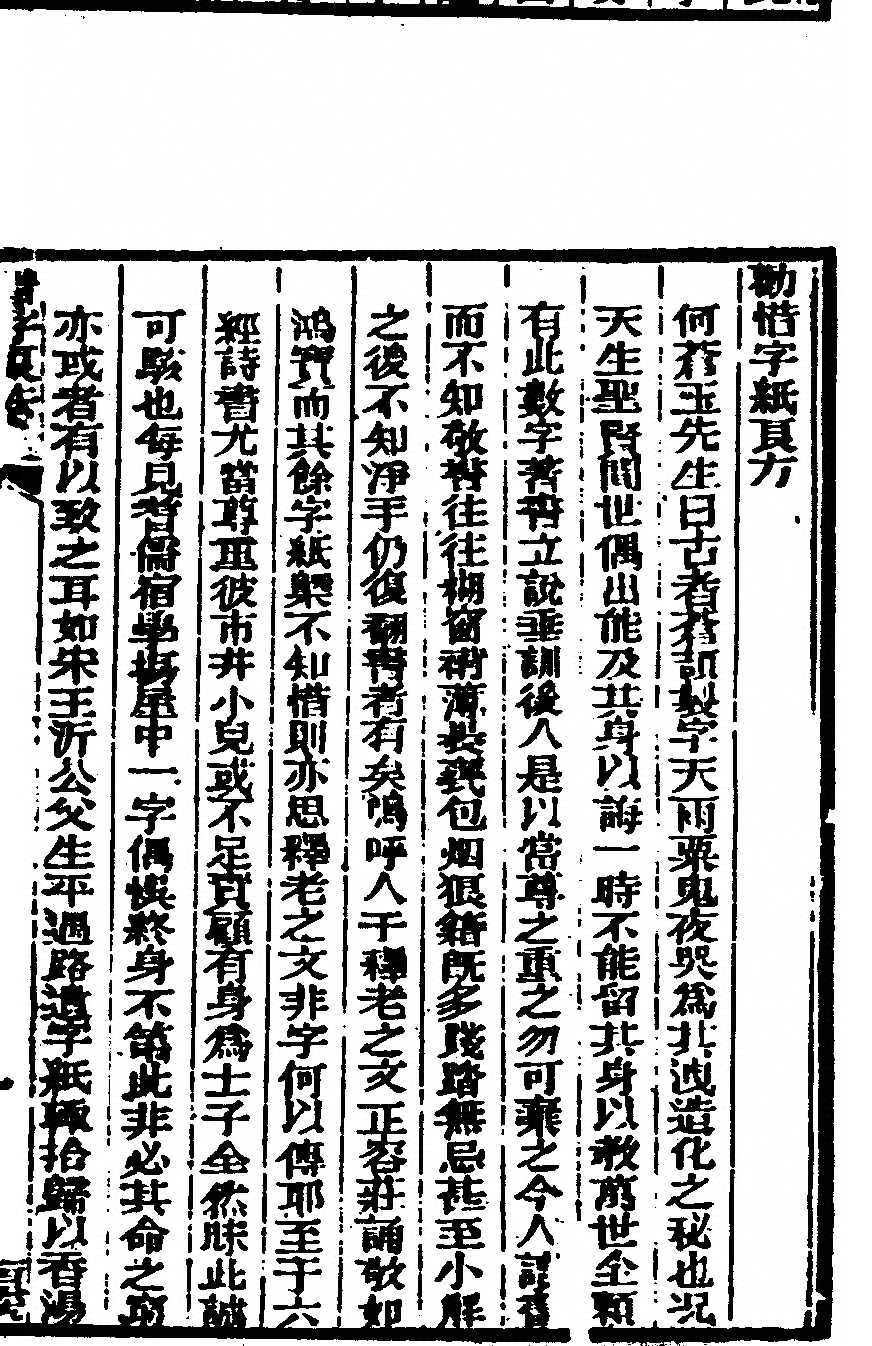 勸惜字紙良方
何蒼玉先生曰古者蒼頡製字天雨粟鬼夜哭爲其洩造化之秘也况
天生聖賢間世偶出能及其身以誨一時不能留其身以教萬世全賴
有此數字著書立說垂訓後人是以當尊之重之勿可棄之今人讀書
而不知敬書往往糊窗褙薄裝甕包烟狠籍旣多踐踏無忌甚至小解
之後不知淨手仍復翻書者有矣嗚呼人于釋老之文正容莊誦敬如
鴻寶而其餘字紙槩不知惜則亦思釋老之文非字何以傳耶至于六
經詩書尤當尊重彼市井小兒或不足責顧有身爲士子全然昧此誠
可駭也每見耆儒宿學塲屋中一字偶悞終身不第此非必其命之窮
亦或者有以致之耳如宋王沂公父生平遇路遺字紙輒拾歸以香湯